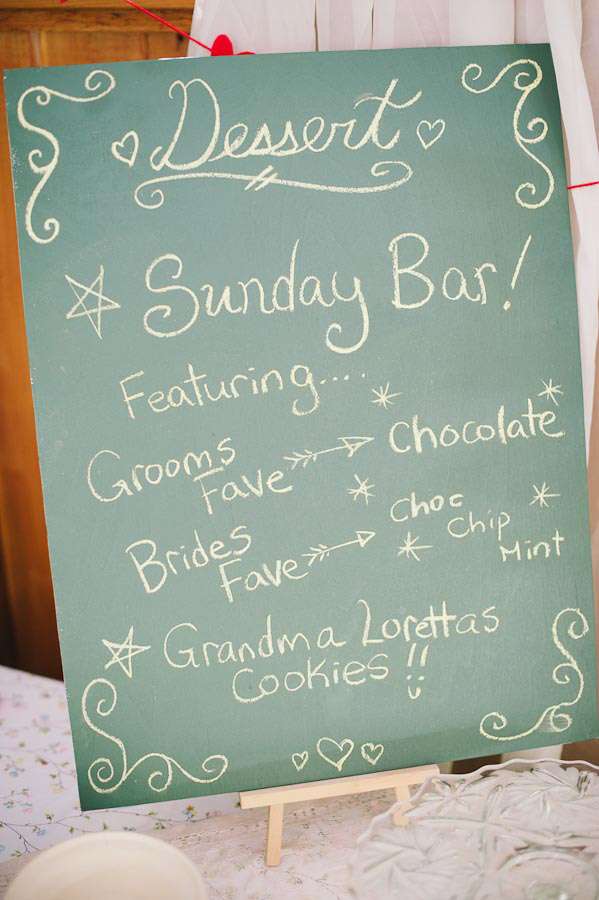 Dessert
Sunday Bar!
Featuring....
Grooms Fave Chocolate
Brides Fave Choc Chip Mint
Grandma Lorettas
Cookies!!